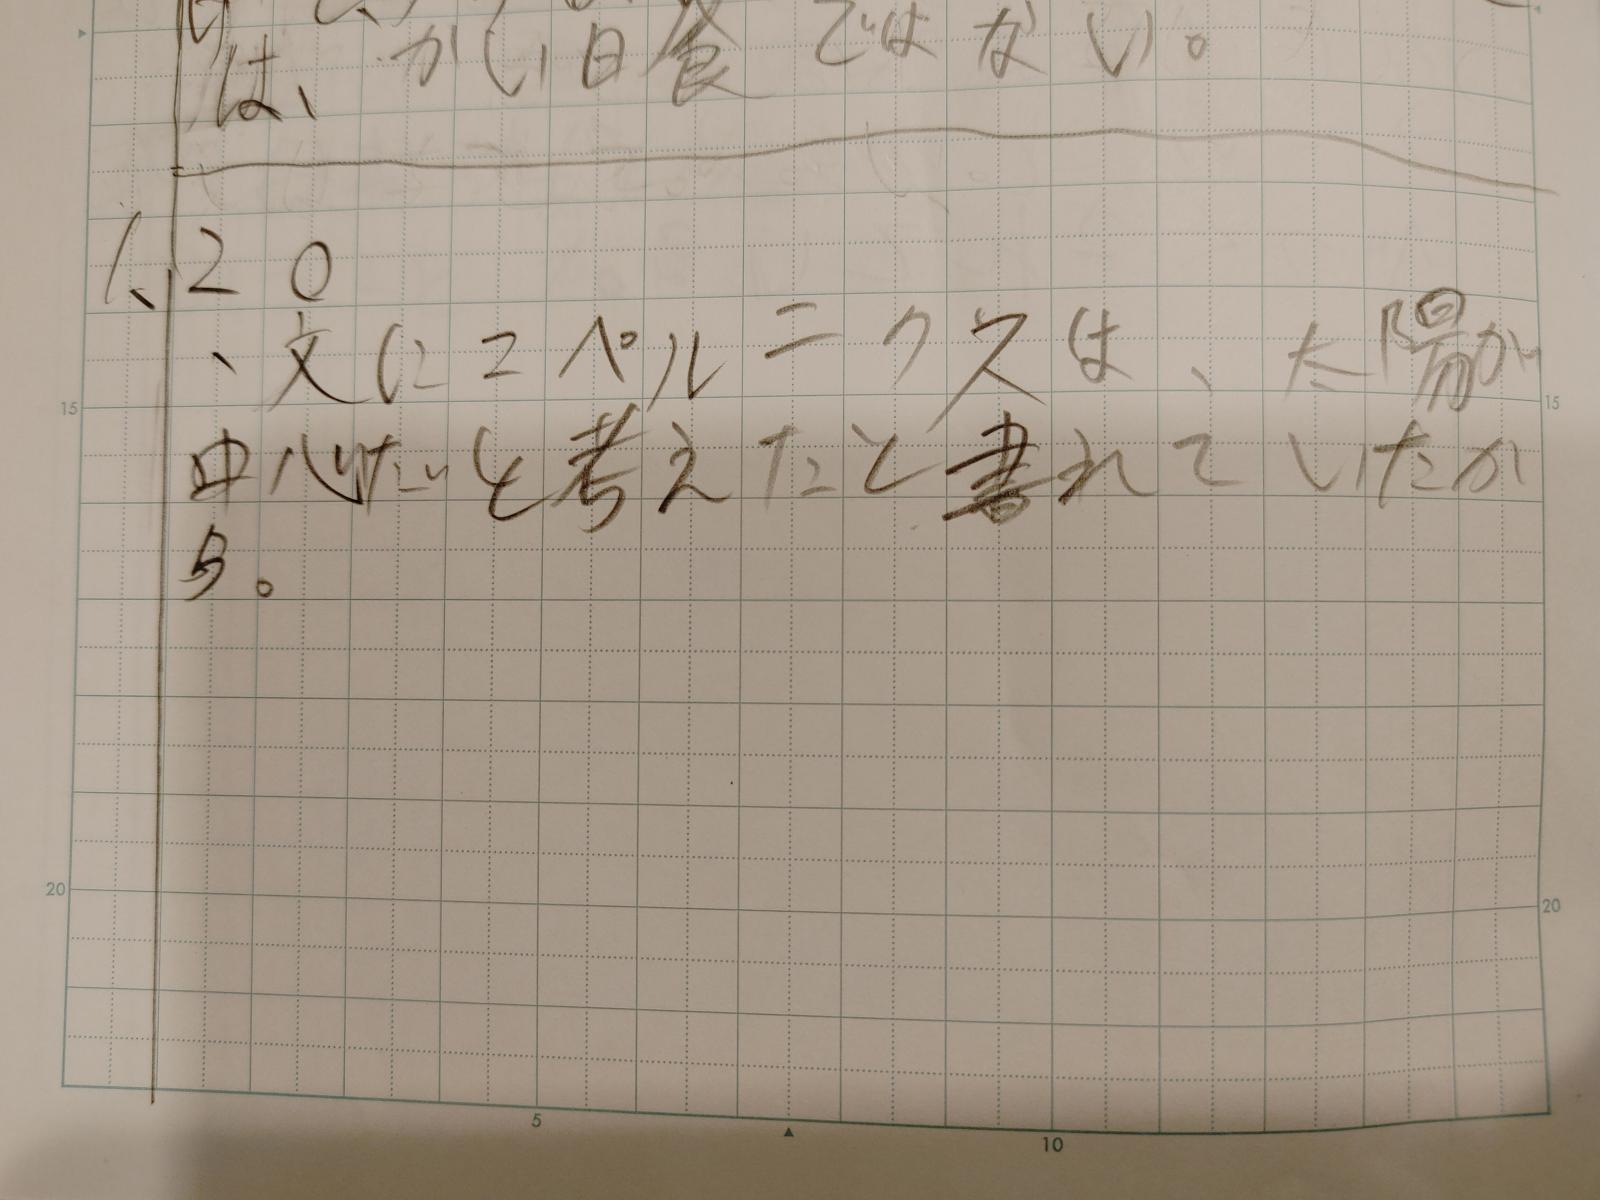 は、かい日食ではない。
1、20
、文にコペルニクスは、太陽が
中心だと考えたと書れていたか
ら。
15
15
20
20
5
10